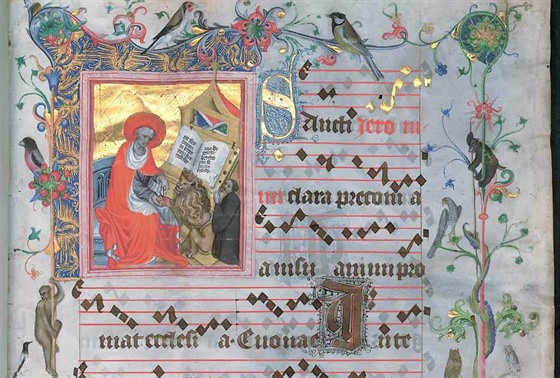 Sancti jero ni
mi clara preconi a
a nisu animi pro
mat ecclesi a. Euouae Ante